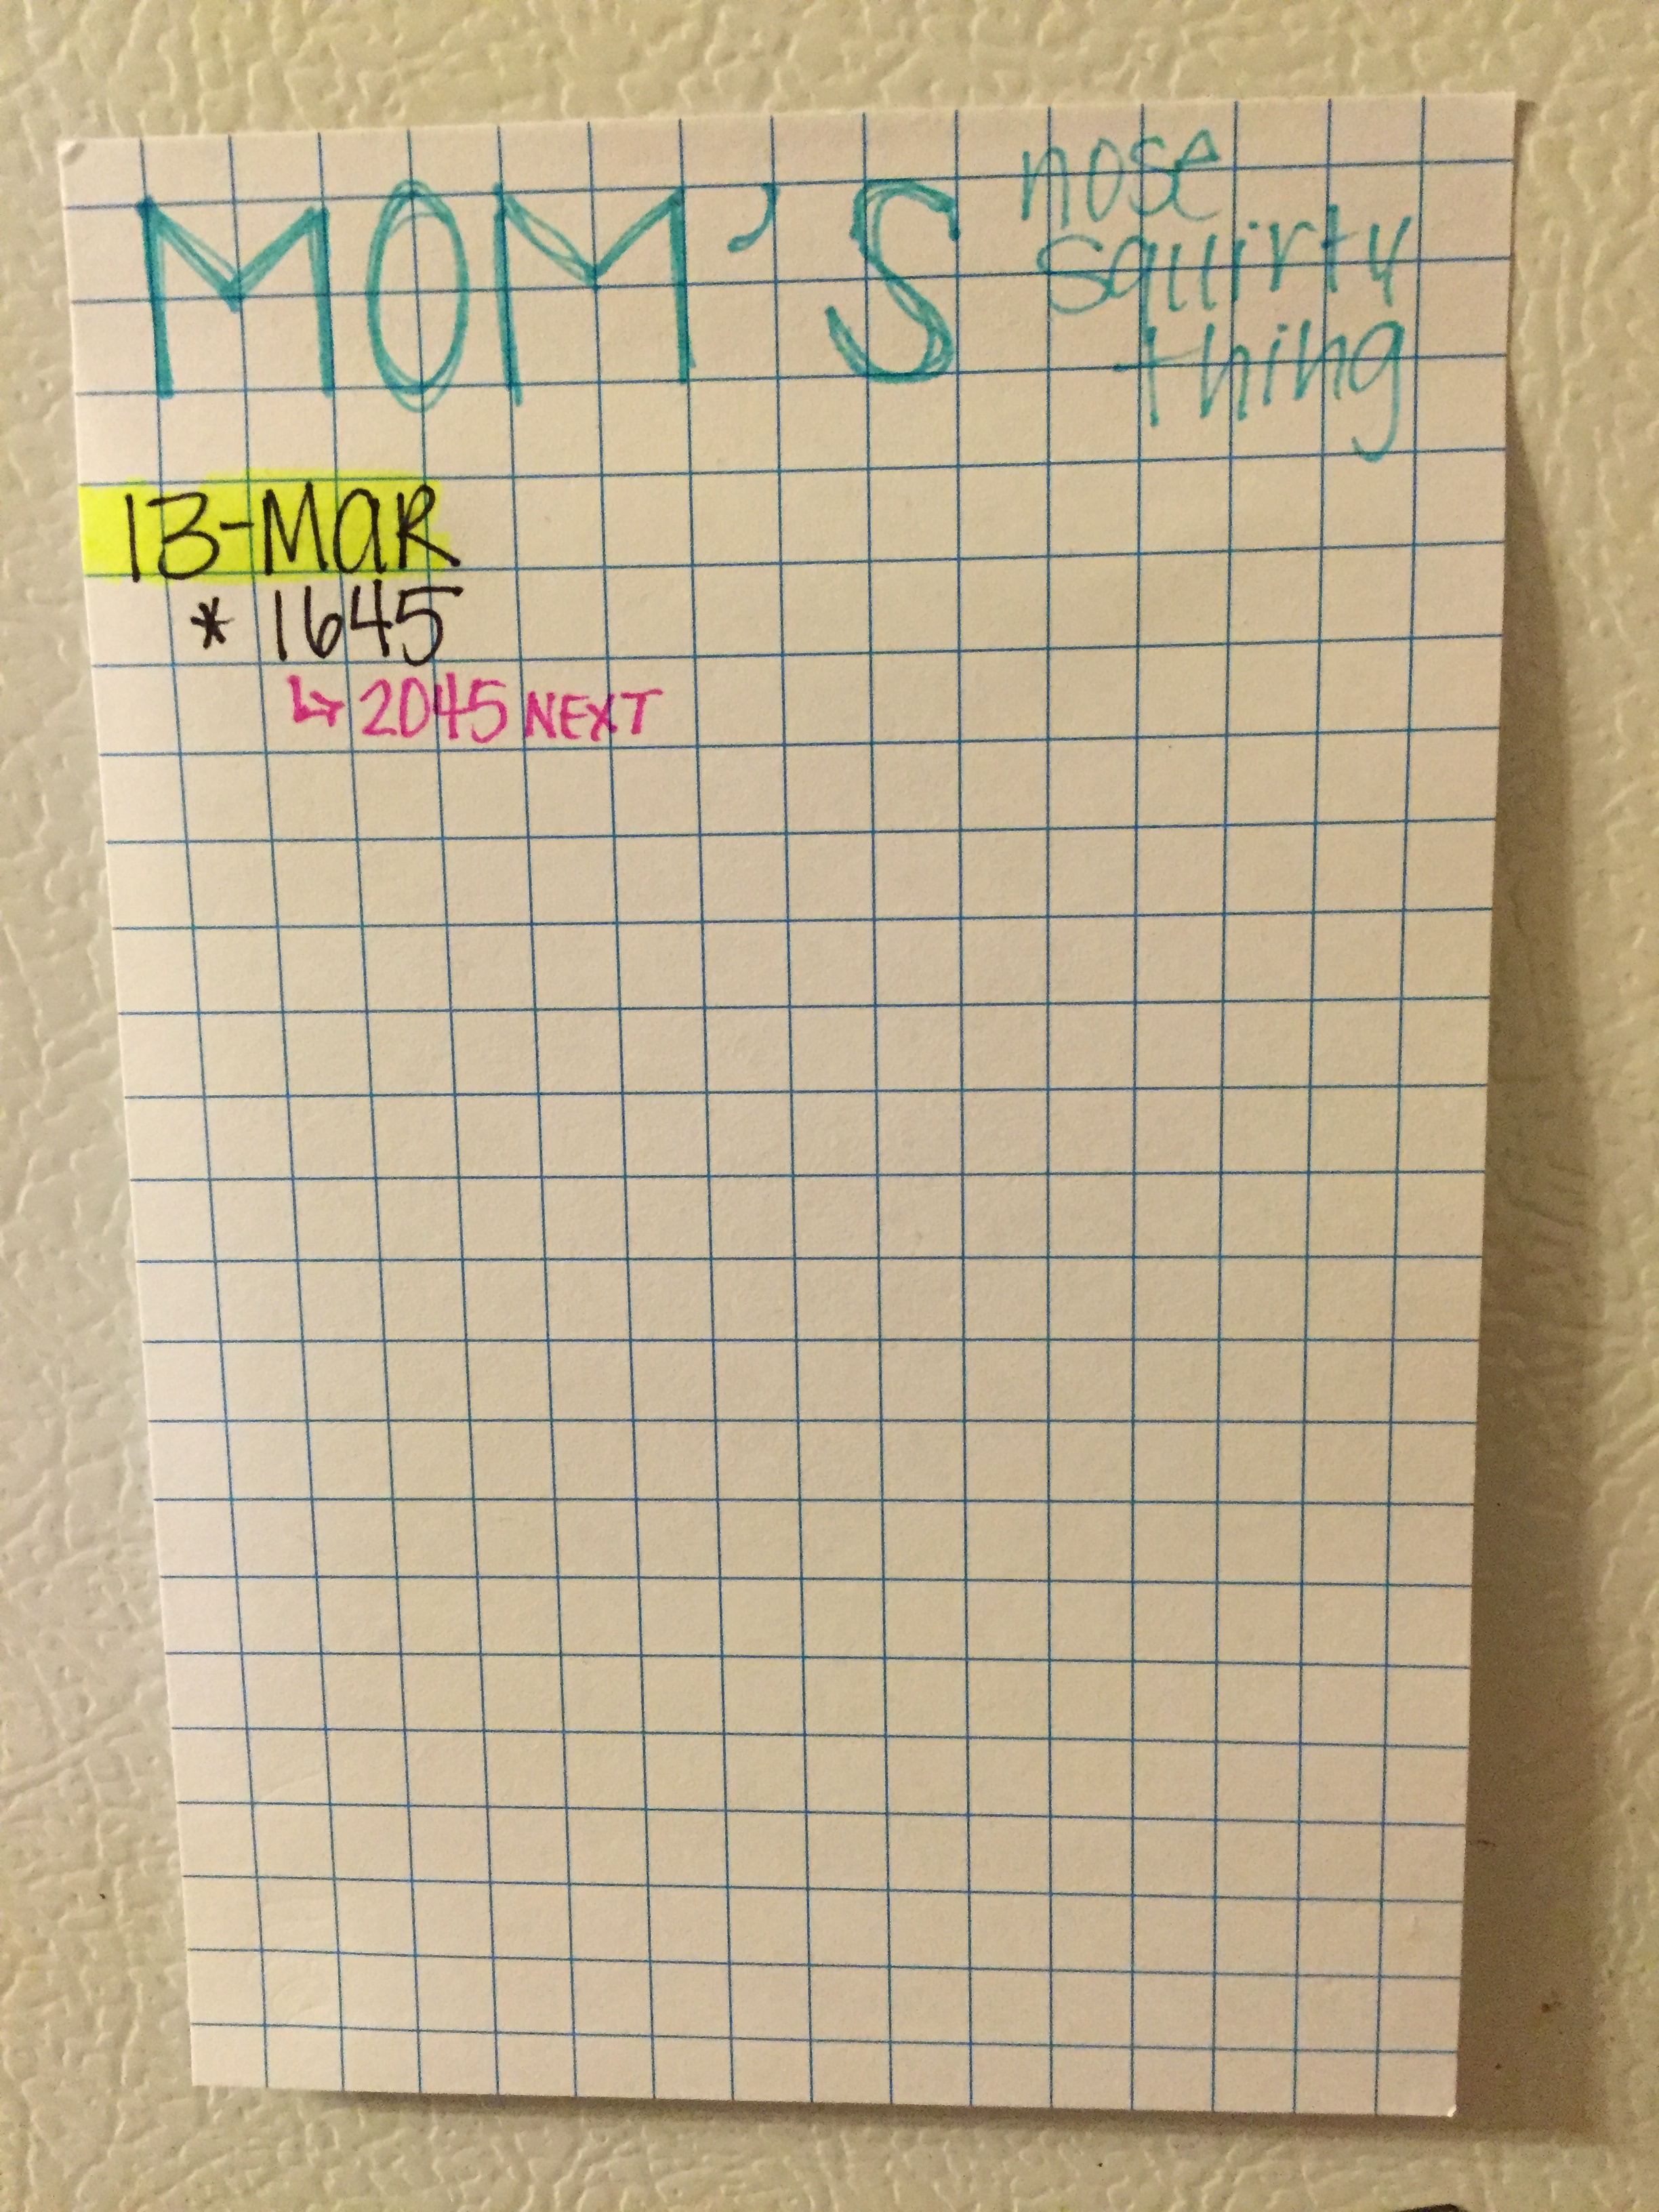 MOM'S nose
squirty
thing
13-MAR
* 1645
↳ 2045 NEXT